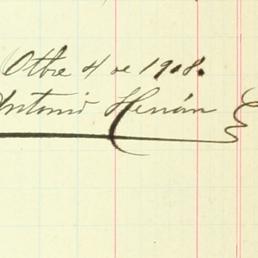 Otbre 4 de 1908.
Antonio Hernán